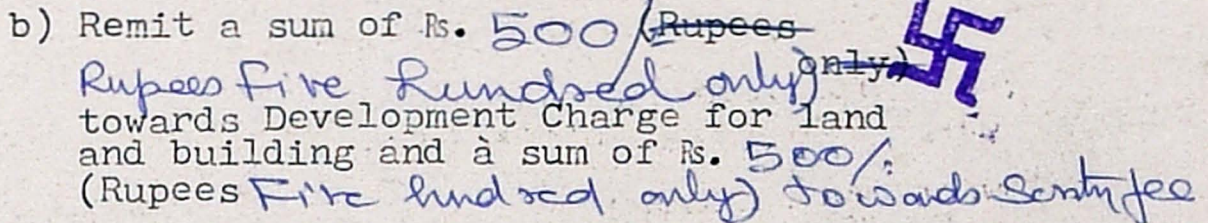 b) Remit a sum of Rs. 500/ (Rupees
Rupees Five hundred only) only)
towards Development Charge for land
and building and a sum of Rs. 500/-
(Rupees Five hundred only) towards Scrutny fee